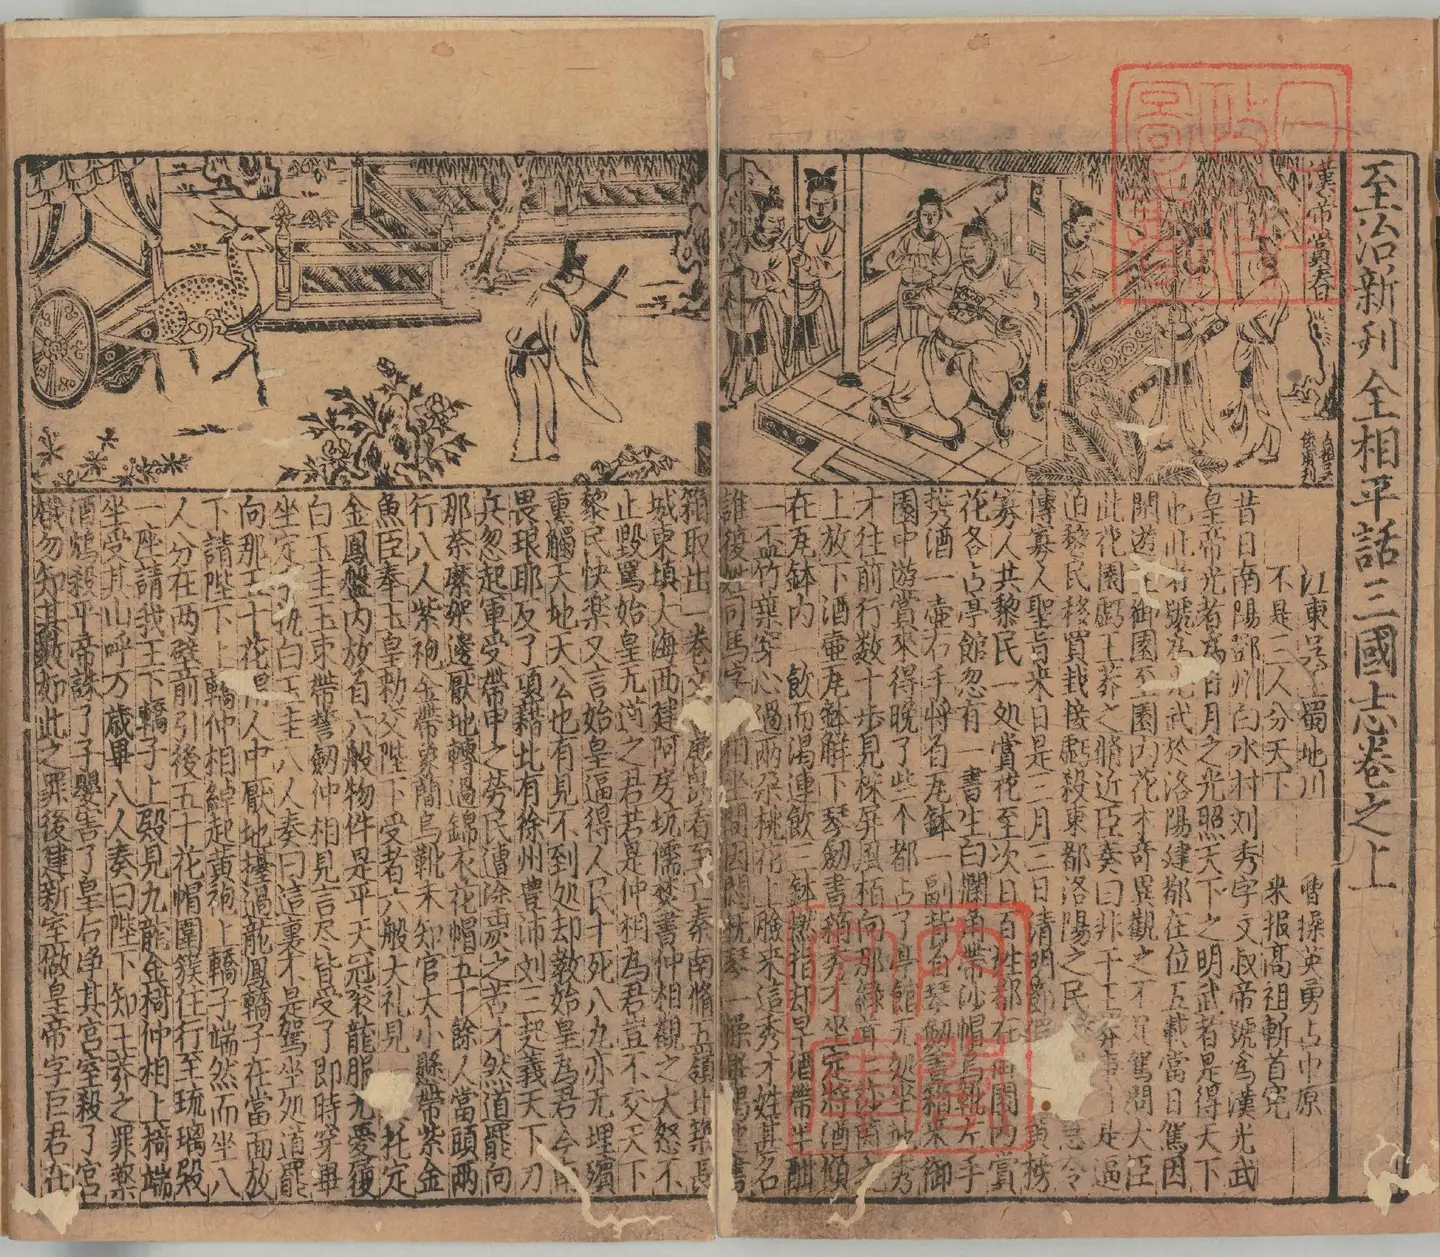 至治新刊全相平話三國志卷之上
漢帝賞春
江東吳 蜀地川 曹操英勇占中原
不是三人分天下 來报高祖斬首冤
昔日南陽鄧州白水村刘秀字文叔帝號為漢光武
皇帝光者為日月之光照天下之明武者是得天下
也此者號為光武於洛陽建都在位五載當日駕因
閑遊在御園至園内花木奇異觀之不 駕問大臣
此花園虧王莽之脩近臣奏曰非干王莽事 是逼
迫黎民移買栽接虧殺東都洛陽之民 急令
傳寡人聖旨来日是三月三日清明節 黃榜
寡人共黎民一処賞花至次日百姓都在 園内賞
花各占亭館忽有一書生白襴角帶沙帽烏靴左手
携酒一壺右手將着瓦鉢一副背着琴劒書箱来御
園中遊賞來得晚了些个都占了亭館无処坐地秀
才往前行数十步見株屏風栢向那綠茸 莎茵之
上放下酒壺瓦鉢解下琴劒書箱秀才坐定將酒傾
在瓦鉢内一飲而渴連飲三鉢撚指却早酒帶半酣
一盃竹葉穿心過兩朶桃花上臉来這秀才姓甚名
誰復姓司馬字仲相坐間因悶撫琴一操 書
箱取出一卷文 展開看至亡秦南脩五嶺北築長
城東填大海西建阿房坑儒焚書仲相觀之大怒不
止毀罵始皇无道之君若是仲相為君豈不交天下
黎民快樂又言始皇逼得人民十死八九亦无埋殯
熏觸天地天公也有見不到処却教始皇為君今南
畏琅耶反了項藉北有徐州豊沛刘三起義天下刀
兵忽起軍受帶甲之勞民遭塗炭之苦才然道罷向
那荼縻架邊厭地轉過錦衣花帽五十餘人當頭兩
行八人紫袍金帶象簡烏靴未知官大小懸帶紫金
魚臣奉玉皇勑交陛下受者六般大礼見一人托定
金鳳盤内放着六般物件是平天冠衮龍服无憂履
白玉圭玉束帶誓劒仲相見言尽皆受了即時穿畢
坐定 執白玉圭八人奏曰這裏不是駕坐処道罷
向那五十花帽人中厭地擡過龍鳳轎子在當面放
下請陛下上轎仲相綽起黄袍上轎子端然而坐八
人分在兩壁前引後五十花帽圍簇住行至琉璃殿
一座請我王下轎子上殿見九龍金椅仲相上椅端
坐受其山呼万歲畢八人奏曰陛下知王莽之罪藥
酒鴆殺平帝誅了子嬰害了皇后净其宮室殺了宮
娥勿知其数如此之罪後建新室做皇帝字巨君在